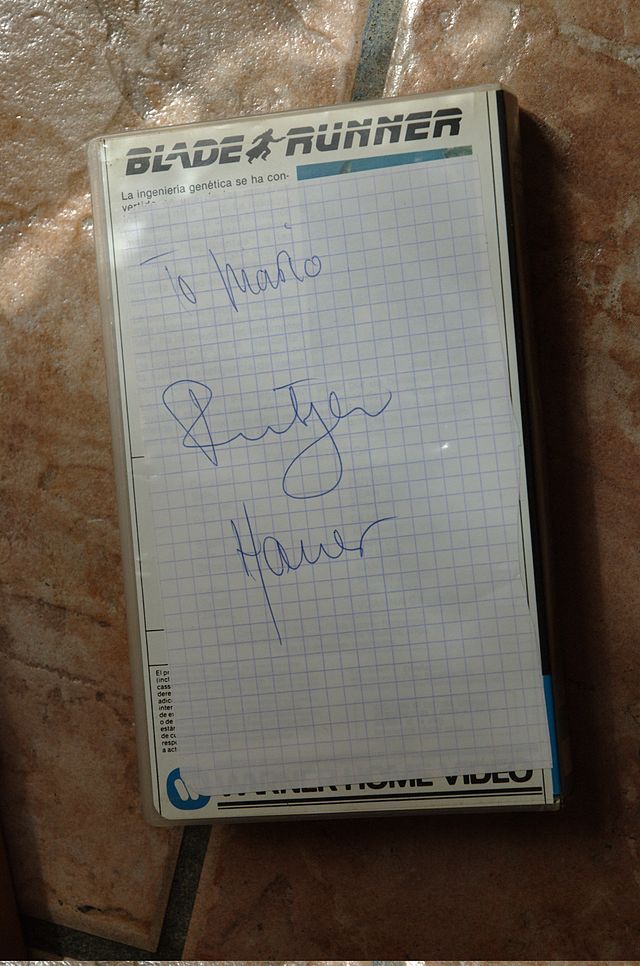 BLADE RUNNER
La ingeniería genética se ha con-
To Mario
Rutger
Hauer
El
(incl
cass
dere
adic
inter
de
o de
están
de
resp
a act
WARNER HOME VIDEO